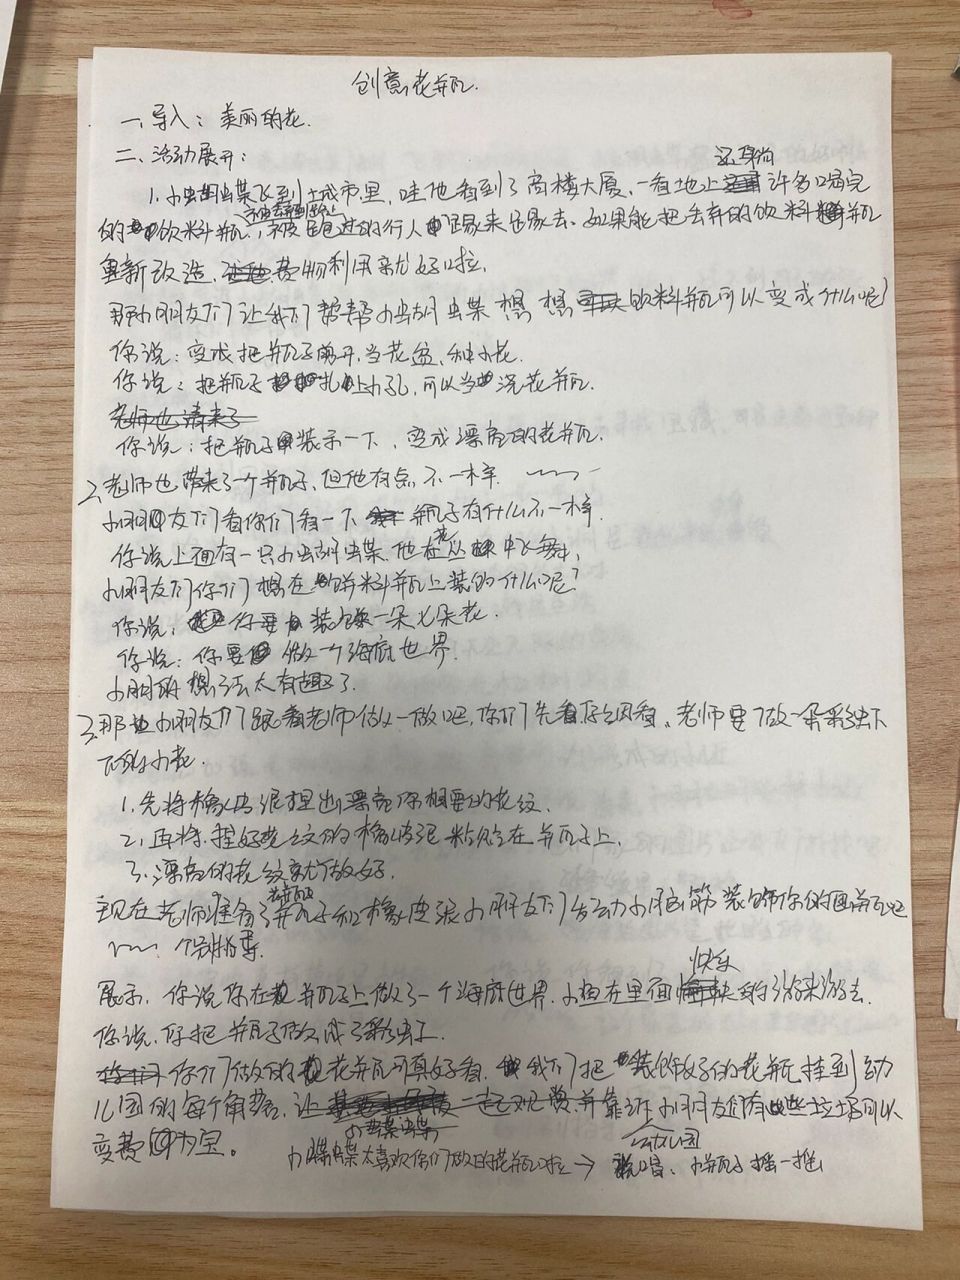 创意花瓶
一、导入：美丽的花
二、活动展开：
还有尚
1.小蝴蝶飞到城市里，哇他看到了高楼大厦、一看地上许多喝完
的饮料瓶，被路过的行人踢来踢去。如果能把丢弃的饮料瓶
重新改造，费物利用就好啦。
那小朋友们让我们帮帮小蝴蝶想想饮料瓶可以变成什么呢？
你说：变成把瓶子剪开，当花盆，种小花。
你说：把瓶子扎上小孔，可以当浇花瓶。
老师也请来了
你说：把瓶子装示一下，变成漂亮的花瓶。
2、老师也带来了一个瓶子，但他有点不一样
小朋友们看你们看一下瓶子有什么不一样
你说上面有一只小蝴蝶，他在花丛中飞舞，
小朋友们你们想在饮料瓶上装的什么呢？
你说：你要装一朵七朵花
你说：你要做一个海底世界
小朋的想法太有趣了
3、那小朋友们跟着老师做一做吧，你们先看仔细看，老师要做一朵
小花
1.先将橡皮泥捏出漂亮你想要的花纹、
2.再将捏好花纹的橡皮泥粘贴在瓶子上，
3.漂亮的花纹就做好
现在老师准备了瓶子和橡皮泥小朋友们发动小脑筋装饰你的花瓶吧
个别指导
快乐
展示，你说你在瓶子上做了一个海底世界，小鱼在里面的游来游去
你说，你把瓶子做成了
你们做的花瓶可真好看，我们把装饰好的花瓶挂到幼
儿园的每个角落，让一起观赏，并告诉小朋友们有些垃圾可以
变费为宝。
小蝴蝶太喜欢你们做的花瓶啦→说唱、小瓶子摇一摇
幼儿园